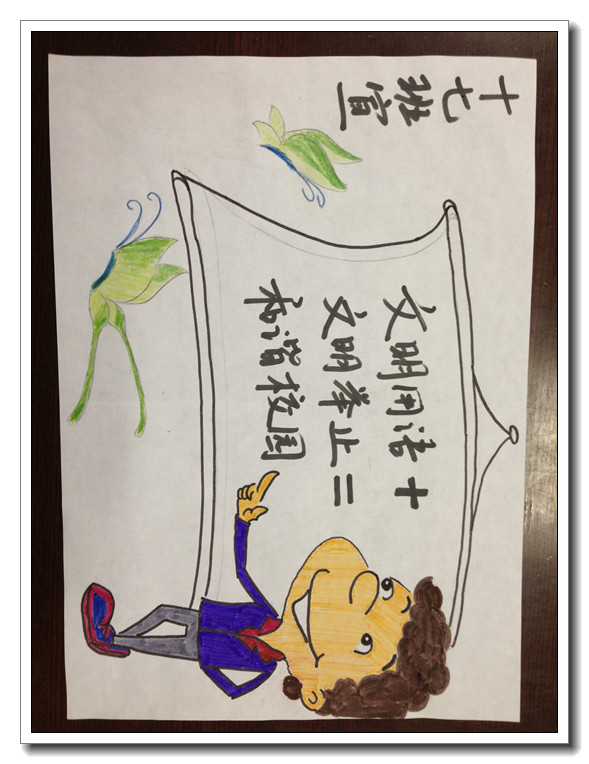 十七班宣
文明用语+
文明举止=
和谐校园